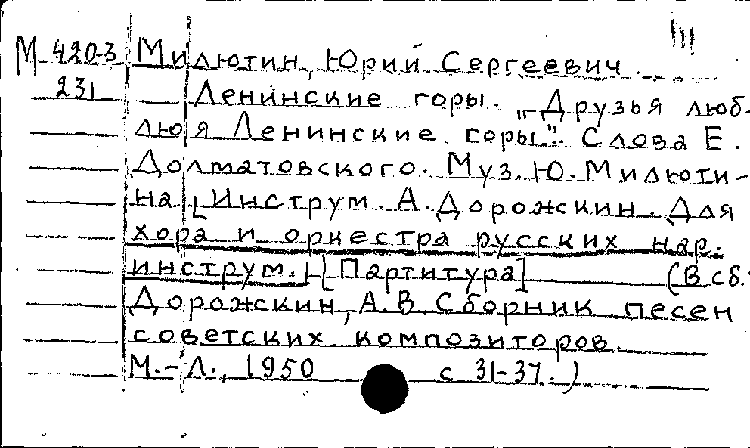 М 420-3 Милютин, Юрий Сергеевич
231 Ленинские горы. "Друзья люб-
лю я Ленинские горы". Слова Е.
Долматовского. Муз. Ю. Милюти-
на [Инструм. А. Дорожкин. Для
хора и оркестра русских нар.
инструм.] [Партитура] (В сб.
Дорожкин, А.В. Сборник песен
советских композиторов.
М.-Л., 1950 с 31-37.)